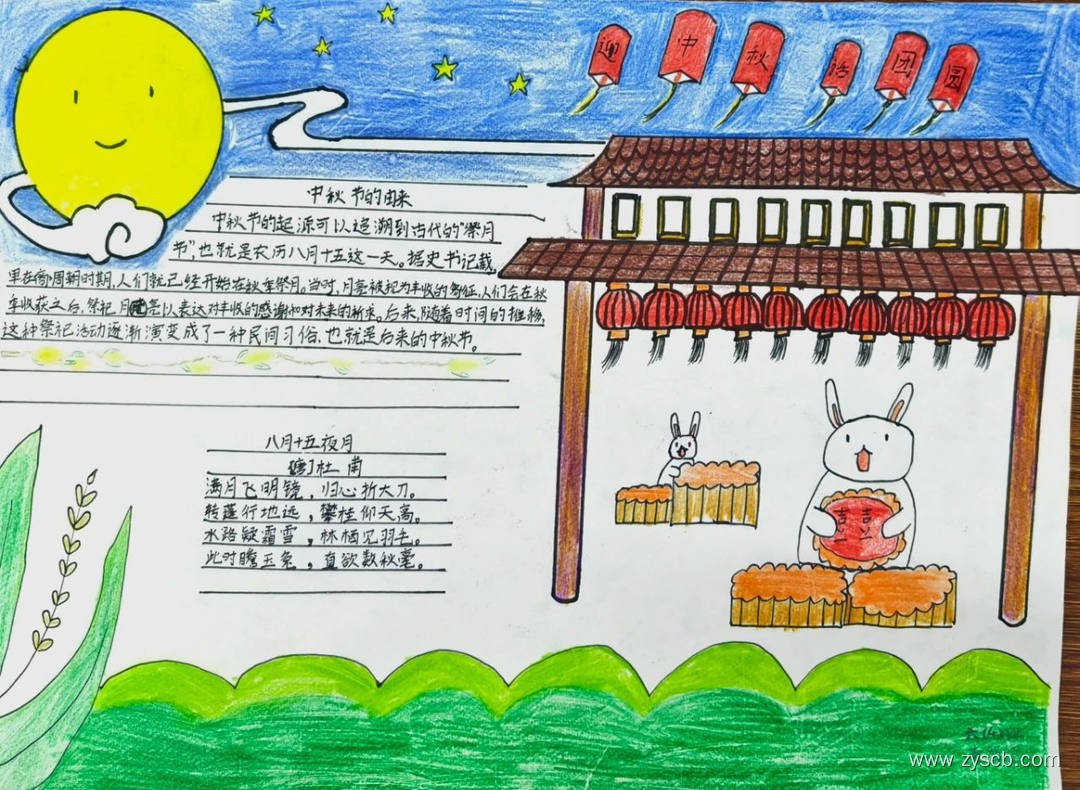 迎中秋话团圆
中秋节的由来
中秋节的起源可以追溯到古代的“祭月
节”，也就是农历八月十五这一天。据史书记载，
早在周朝时期，人们就已经开始在秋季祭月。当时，月亮被视为丰收的象征，人们会在秋
年收获之后，祭祀月亮以表达对丰收的感谢和对未来的祈求。后来，随着时间的推移，
这种祭祀活动逐渐演变成了一种民间习俗，也就是后来的中秋节。
八月十五夜月
杜甫
满月飞明镜，归心折大刀。
转蓬行地远，攀桂仰天高。
水路疑霜雪，林栖见羽毛。
此时瞻玉兔，直欲数秋毫。
www.zyscb.com